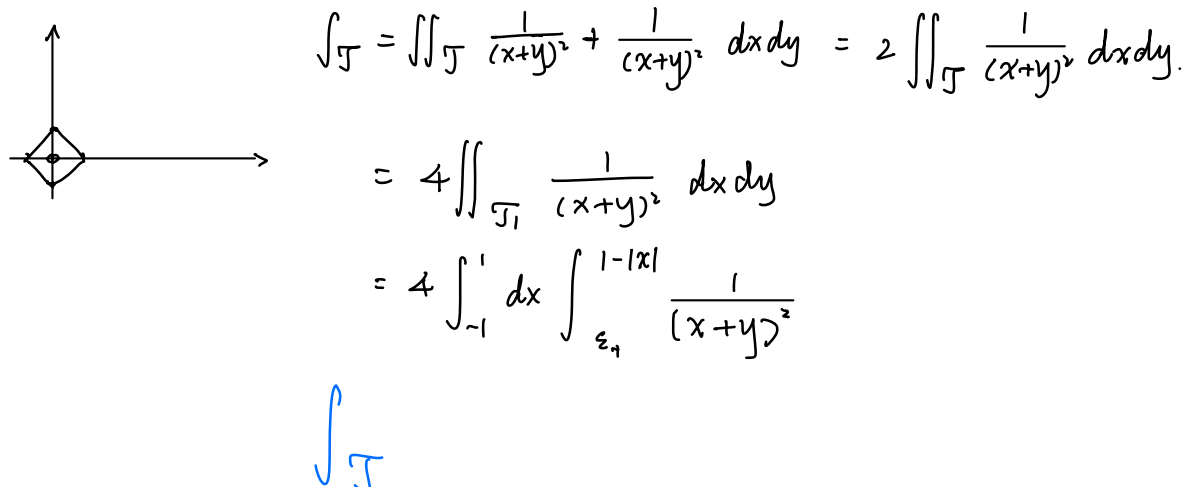 ∫_J = ∬_J 1/(x+y)² + 1/(x+y)² dxdy = 2∬_J 1/(x+y)² dxdy.
= 4∬_J₁ 1/(x+y)² dxdy
= 4∫_{-1}^{1} dx ∫_{ε₊}^{1-|x|} 1/(x+y)²
∫_J